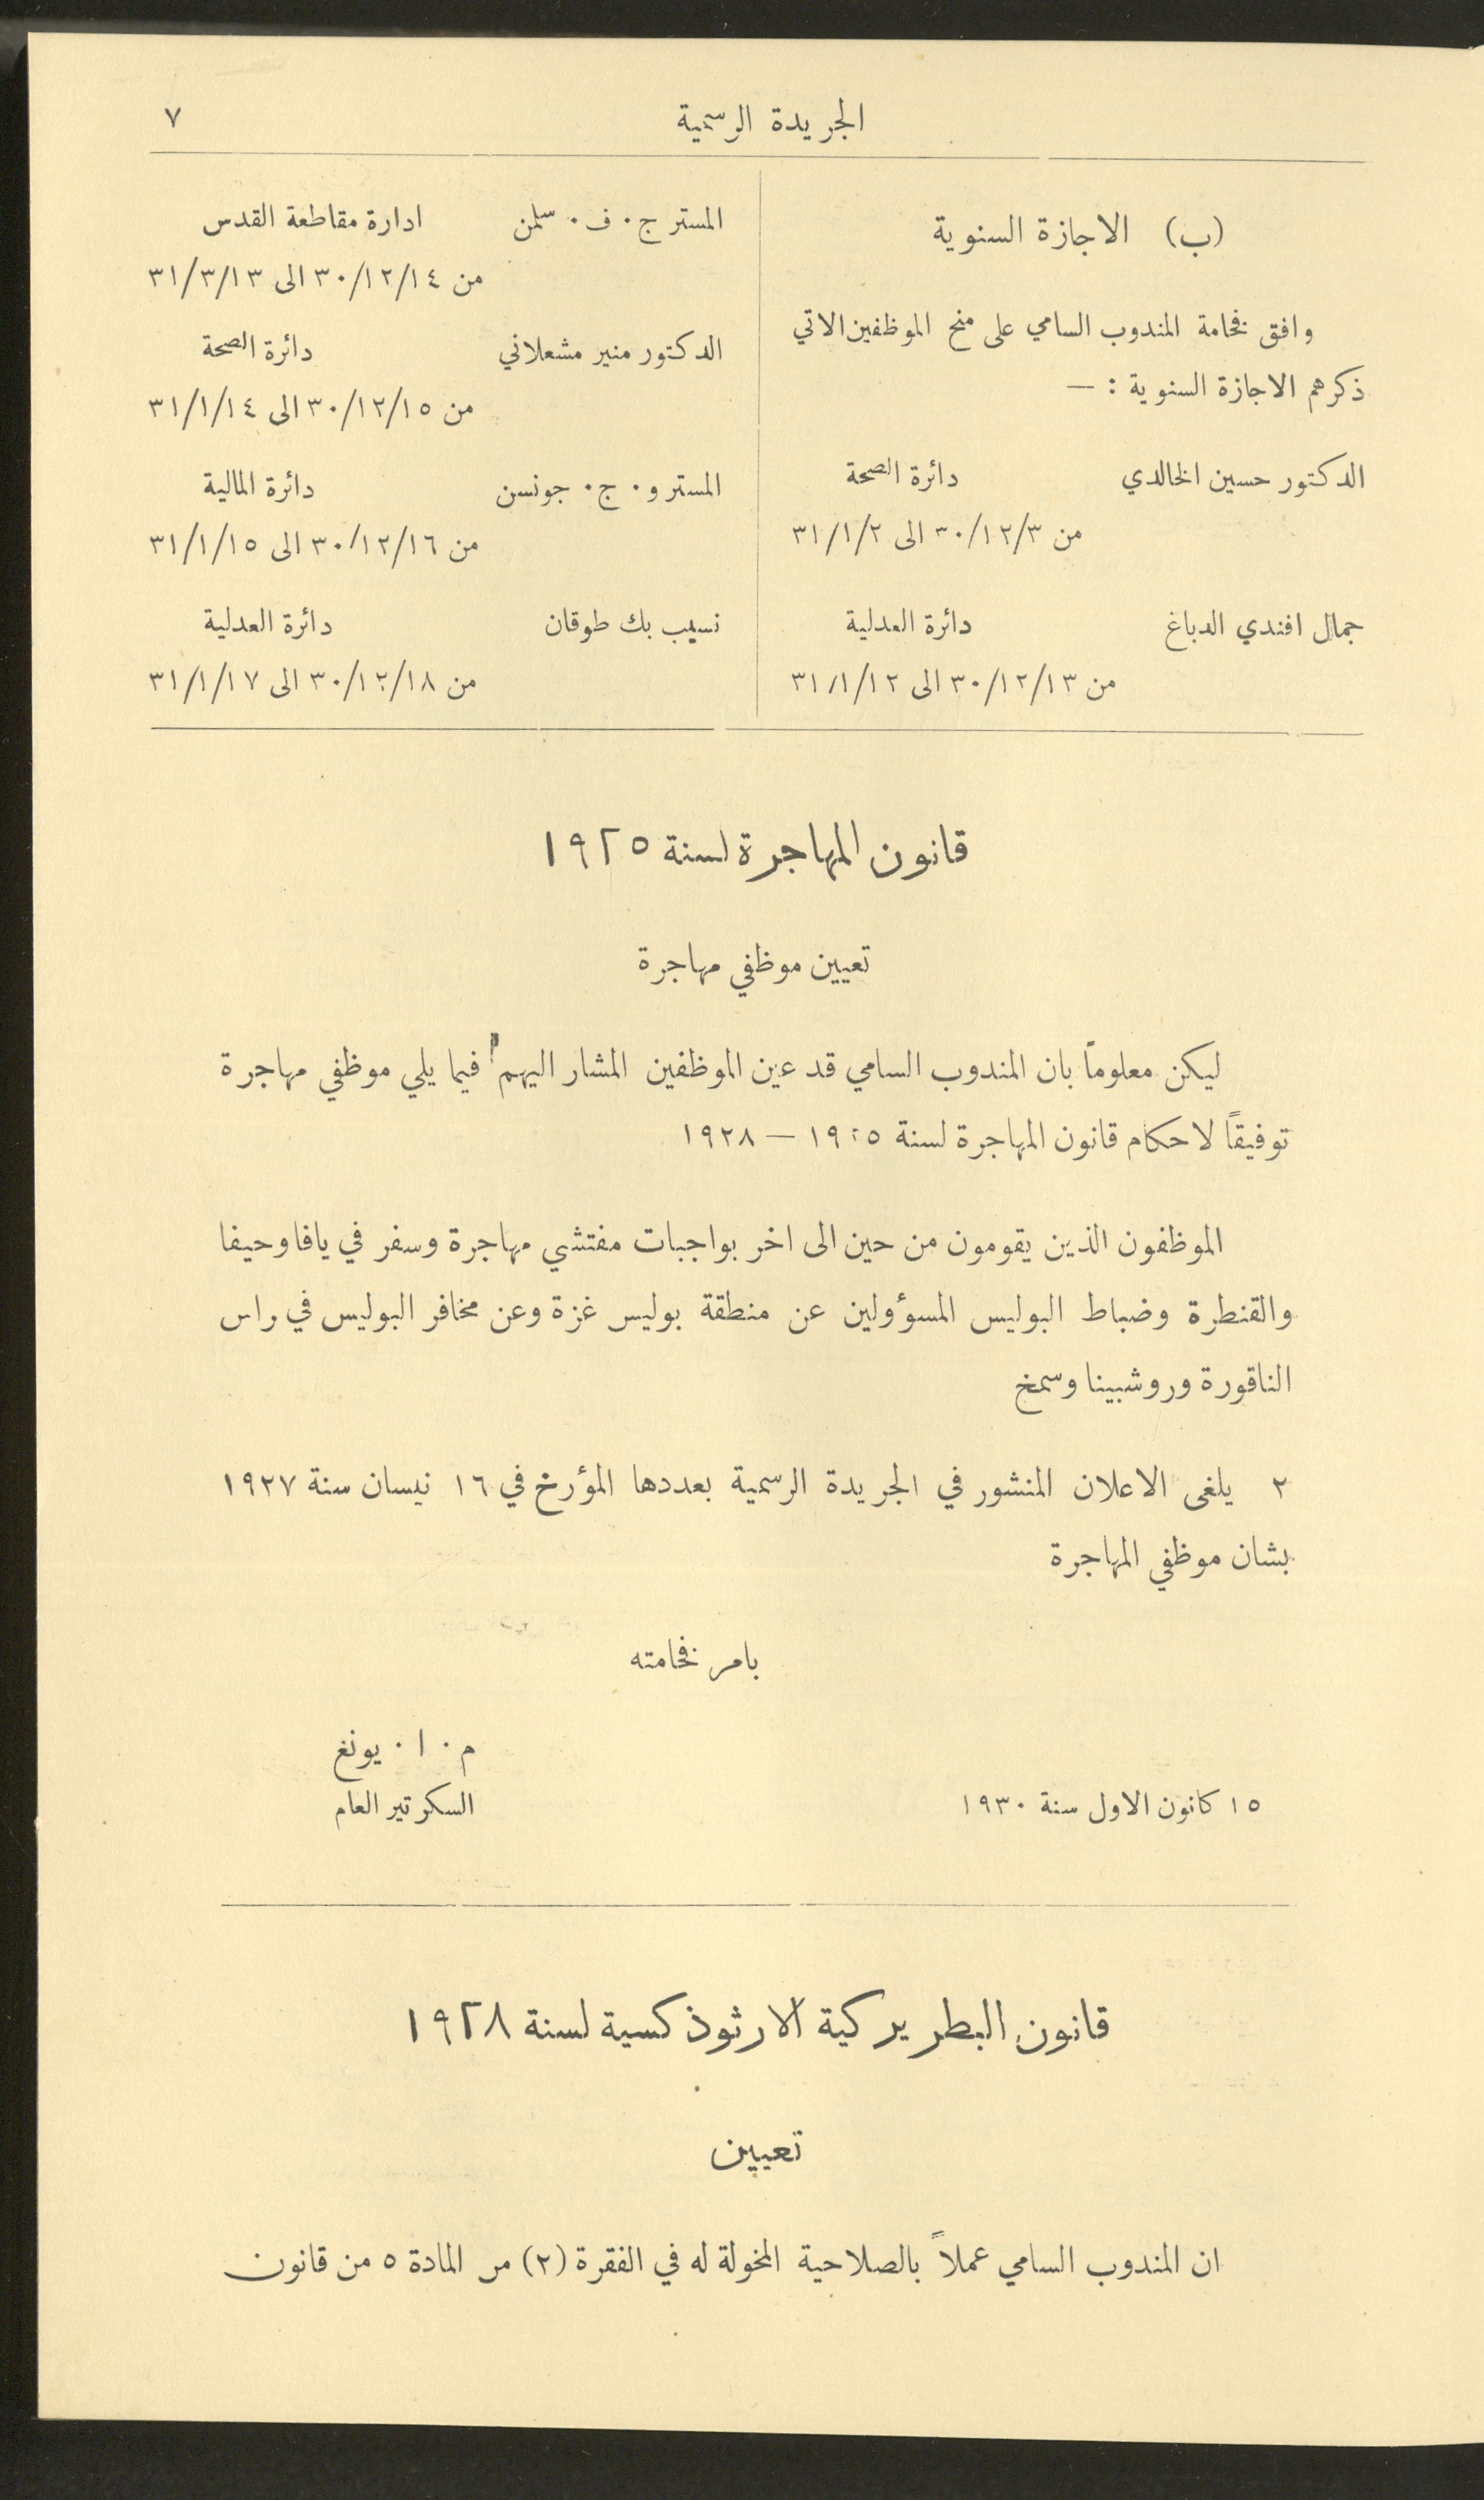 الجريدة الرسمية
٧
(ب) الاجازة السنوية
وافق فخامة المندوب السامي على منح الموظفين الاتي
ذكرهم الاجازة السنوية : —
الدكتور حسين الخالدي دائرة الصحة
من ٣٠/١٢/٣ الى ٣١/١/٢
جمال افندي الدباغ دائرة العدلية
من ٣٠/١٢/١٣ الى ٣١/١/١٢
المستر ج. ف. سلمن ادارة مقاطعة القدس
من ٣٠/١٢/١٤ الى ٣١/٣/١٣
الدكتور منير مشعلاني دائرة الصحة
من ٣٠/١٢/١٥ الى ٣١/١/١٤
المستر و. ج. جونسن دائرة المالية
من ٣٠/١٢/١٦ الى ٣١/١/١٥
نسيب بك طوقان دائرة العدلية
من ٣٠/١٢/١٨ الى ٣١/١/١٧
قانون المهاجرة لسنة ١٩٢٥
تعيين موظفي مهاجرة
ليكن معلوماً بان المندوب السامي قد عين الموظفين المشار اليهم فيما يلي موظفي مهاجرة
توفيقاً لاحكام قانون المهاجرة لسنة ١٩٢٥ — ١٩٢٨
الموظفون الذين يقومون من حين الى اخر بواجبات مفتشي مهاجرة وسفر في يافا وحيفا
والقنطرة وضباط البوليس المسوؤولين عن منطقة بوليس غزة وعن مخافر البوليس في راس
الناقورة وروشبينا وسمخ
٢ يلغى الاعلان المنشور في الجريدة الرسمية بعددها المؤرخ في ١٦ نيسان سنة ١٩٢٧
بشان موظفي المهاجرة
بامر فخامته
م. ا. يونغ
١٥ كانون الاول سنة ١٩٣٠ السكرتير العام
قانون البطريركية الارثوذكسية لسنة ١٩٢٨
تعيين
ان المندوب السامي عملاً بالصلاحية المخولة له في الفقرة (٢) من المادة ٥ من قانون